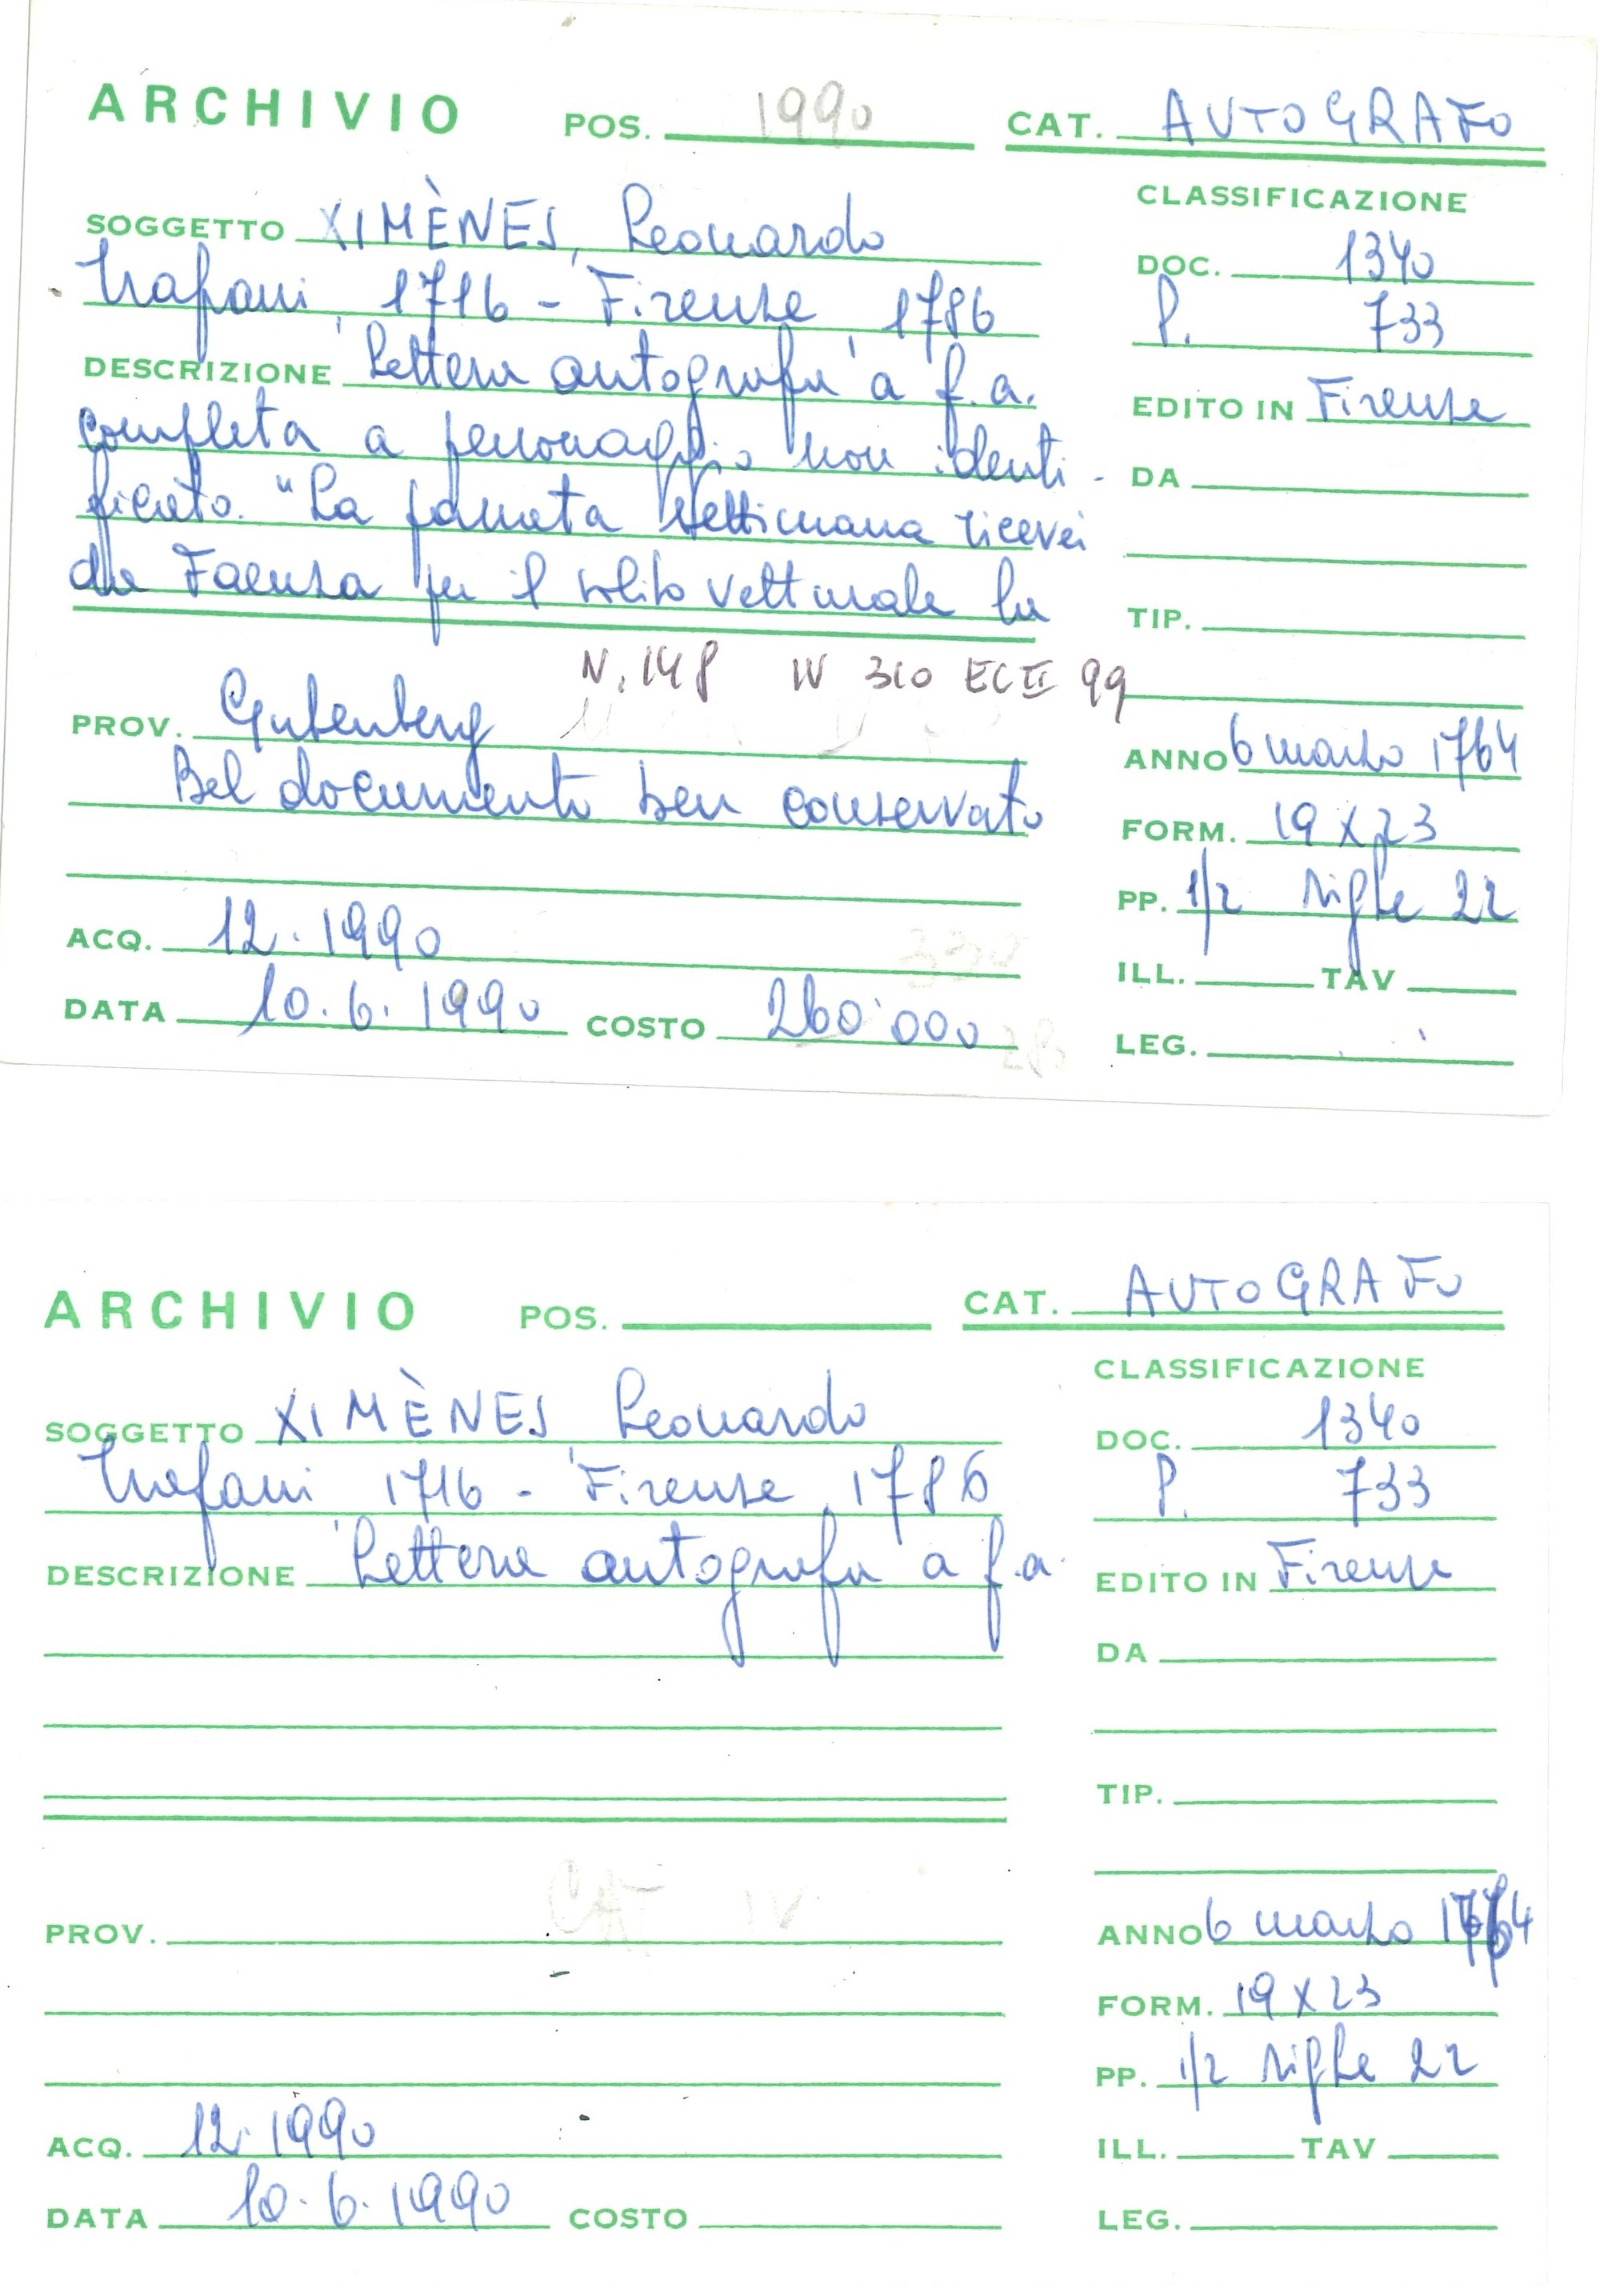 ARCHIVIO POS. 1990 CAT. AUTOGRAFO
SOGGETTO XIMÈNES, Leonardo
Trapani, 1716 - Firenze, 1786
DESCRIZIONE Lettera autografa a f.a.
completa a personaggio non identi-
ficato. "La passata settimana ricevei
da Faenza per il solito vetturale la
CLASSIFICAZIONE
DOC. 1340
P. 733
EDITO IN Firenze
DA
TIP.
N. 148 IV 310 EC II 99
PROV. Gutenberg
Bel documento ben conservato
ACQ. 12.1990
DATA 10.6.1990 COSTO 260'000
ANNO 6 marzo 1764
FORM. 19 X 23
PP. 1/2 righe 22
ILL. TAV
LEG.
ARCHIVIO POS. CAT. AUTOGRAFO
SOGGETTO XIMÈNES, Leonardo
Trapani, 1716 - Firenze, 1786
DESCRIZIONE Lettera autografa a f.a.
CLASSIFICAZIONE
DOC. 1340
P. 733
EDITO IN Firenze
DA
TIP.
CAT IV
PROV.
ACQ. 12.1990
DATA 10.6.1990 COSTO
ANNO 6 marzo 1764
FORM. 19 X 23
PP. 1/2 righe 22
ILL. TAV
LEG.